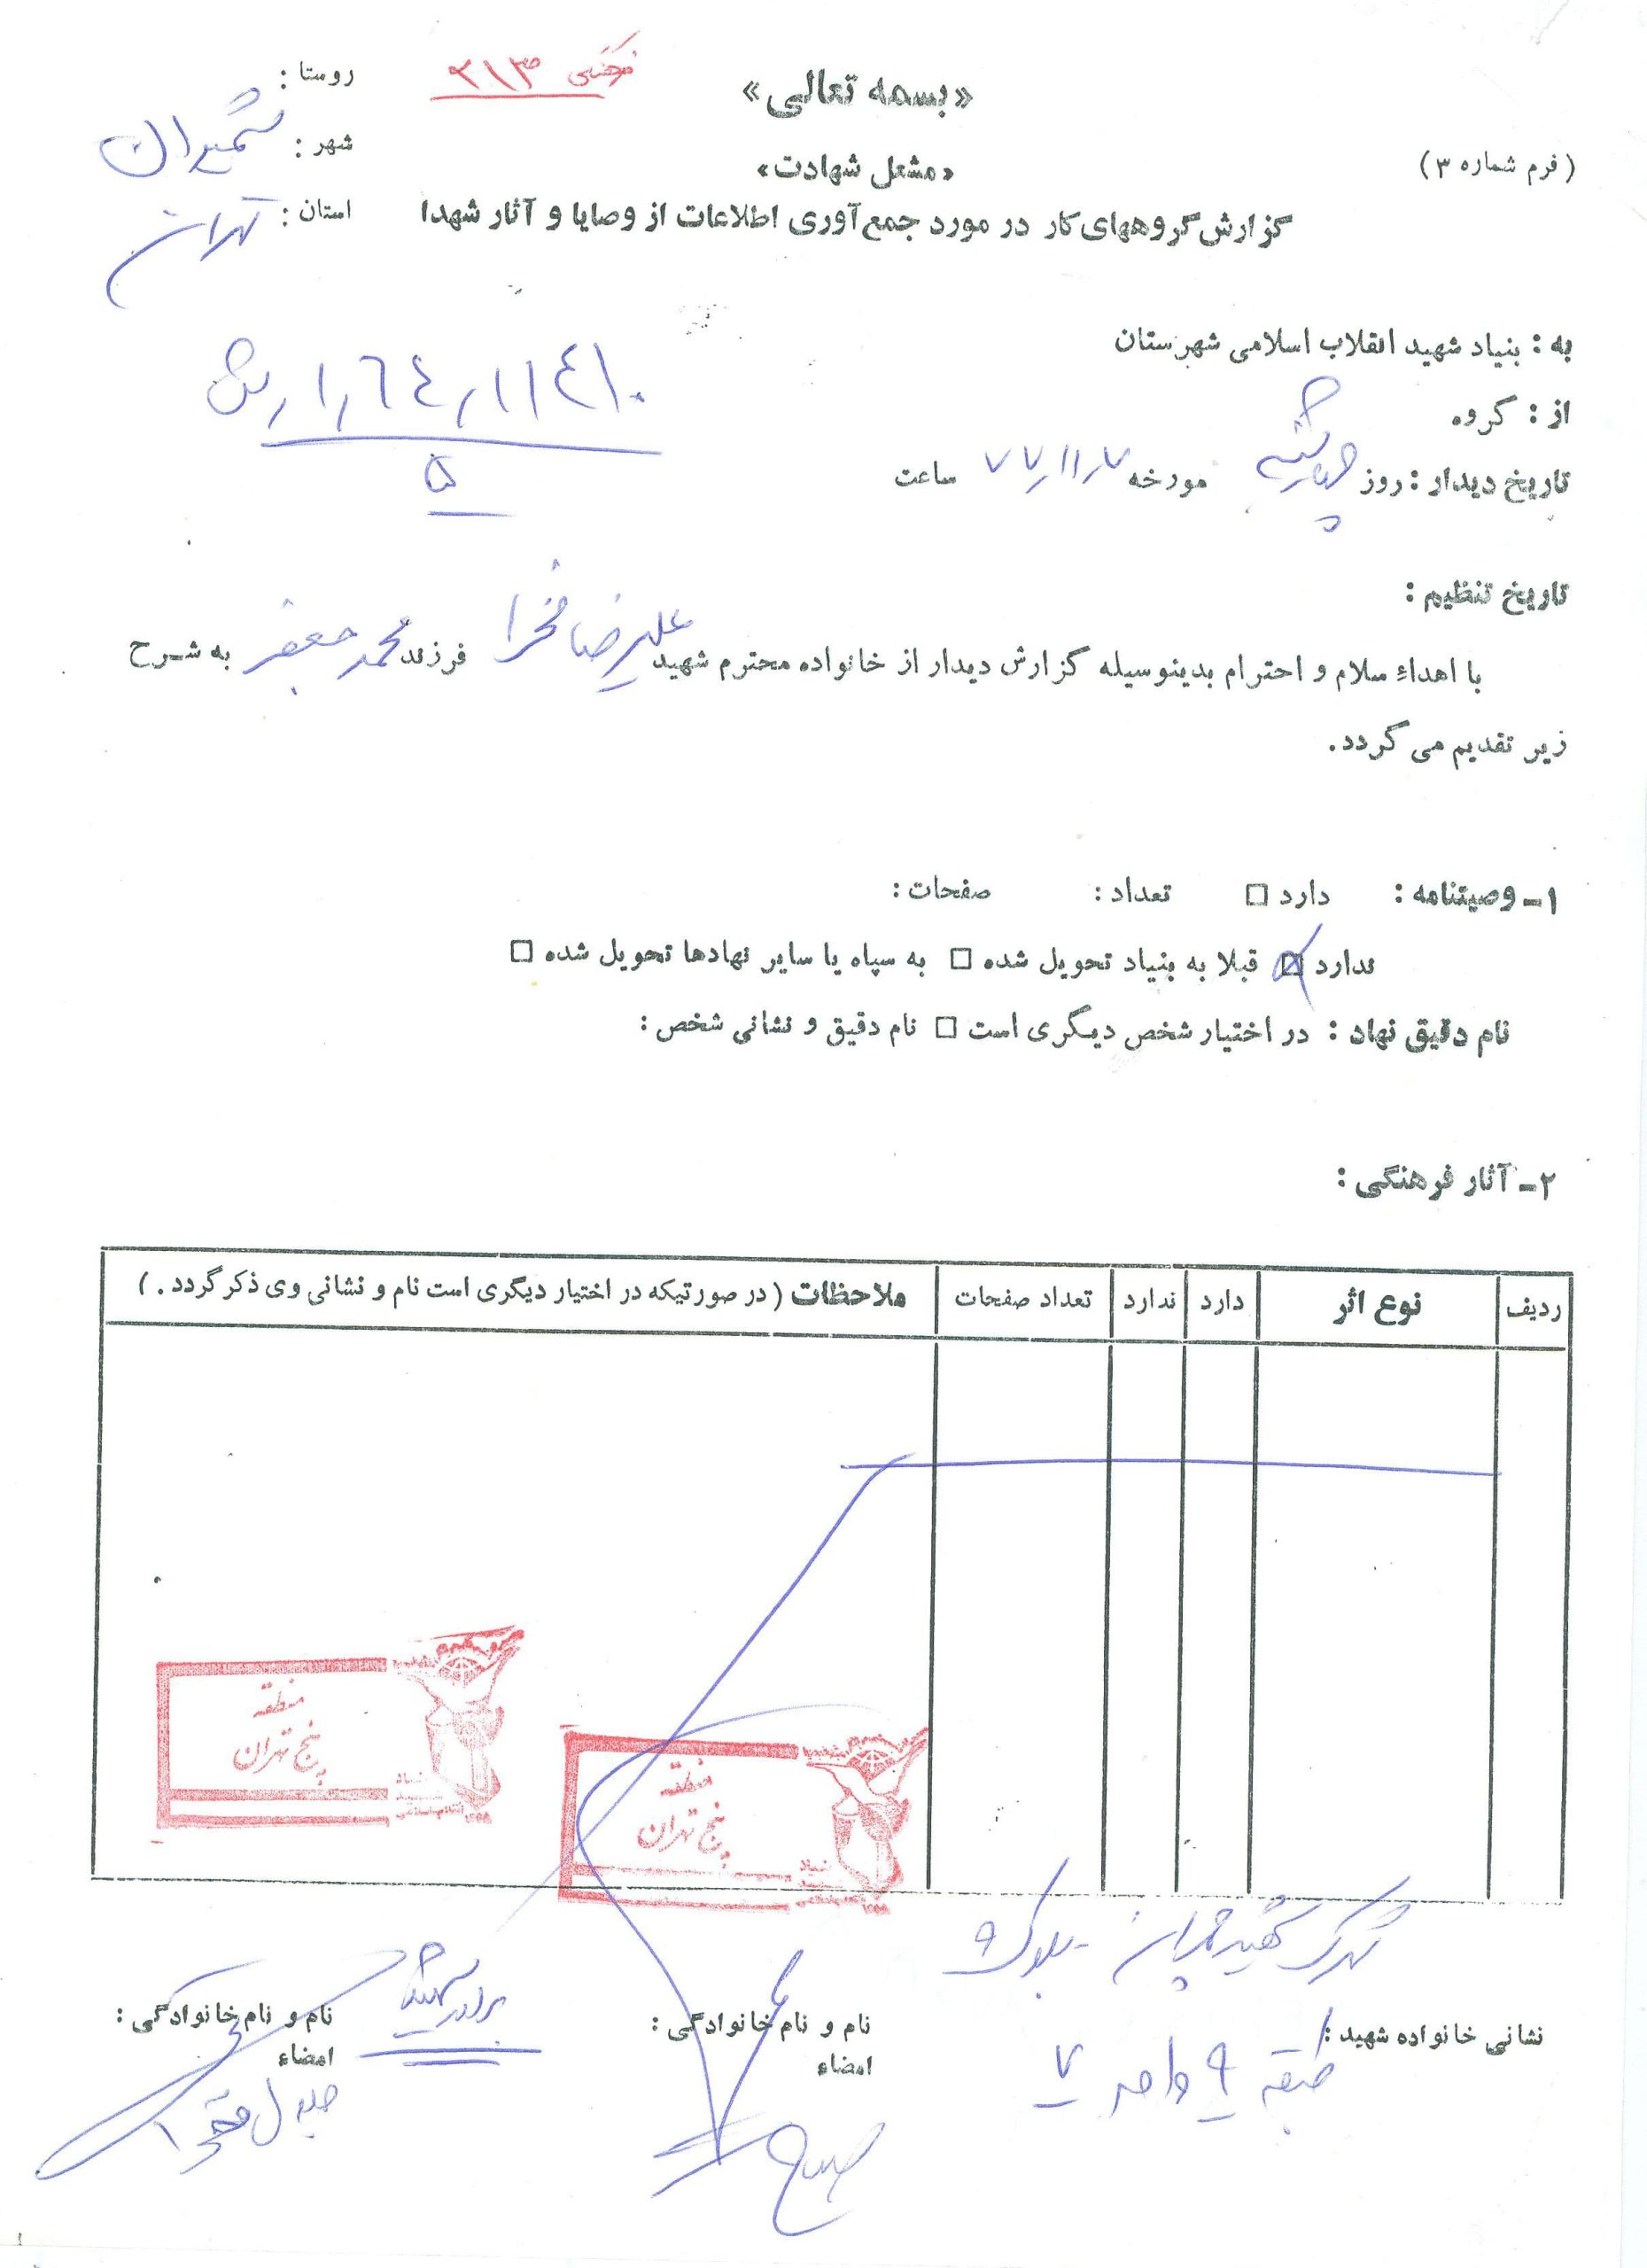 «بسمه تعالی»
روستا :
(فرم شماره ۳)
«مشعل شهادت»
شهر : شمیران
گزارش گروههای کار در مورد جمع‌آوری اطلاعات از وصایا و آثار شهدا
استان : تهران
به : بنیاد شهید انقلاب اسلامی شهرستان
از : گروه
تاریخ دیدار : روز چهارشنبه مورخه ۷۷/۱۱/۷ ساعت
۵
تاریخ تنظیم :
با اهداء سلام و احترام بدینوسیله گزارش دیدار از خانواده محترم شهید علیرضا فخرا فرزند محمد جعفر به شرح
زیر تقدیم می گردد.
۱ـ وصیتنامه : دارد □ تعداد : صفحات :
ندارد ☒ قبلا به بنیاد تحویل شده □ به سپاه یا سایر نهادها تحویل شده □
نام دقیق نهاد : در اختیار شخص دیگری است □ نام دقیق و نشانی شخص :
۲ـ آثار فرهنگی :
ردیف نوع اثر دارد ندارد تعداد صفحات ملاحظات (در صورتیکه در اختیار دیگری است نام و نشانی وی ذکر گردد . )
منطقه
پنج تهران
منطقه
پنج تهران
شهرک شهید چمران - بلوک ۹
نشانی خانواده شهید : طبقه ۹ واحد ۷
نام و نام خانوادگی :
امضاء
برادر شهید
نام و نام خانوادگی :
امضاء